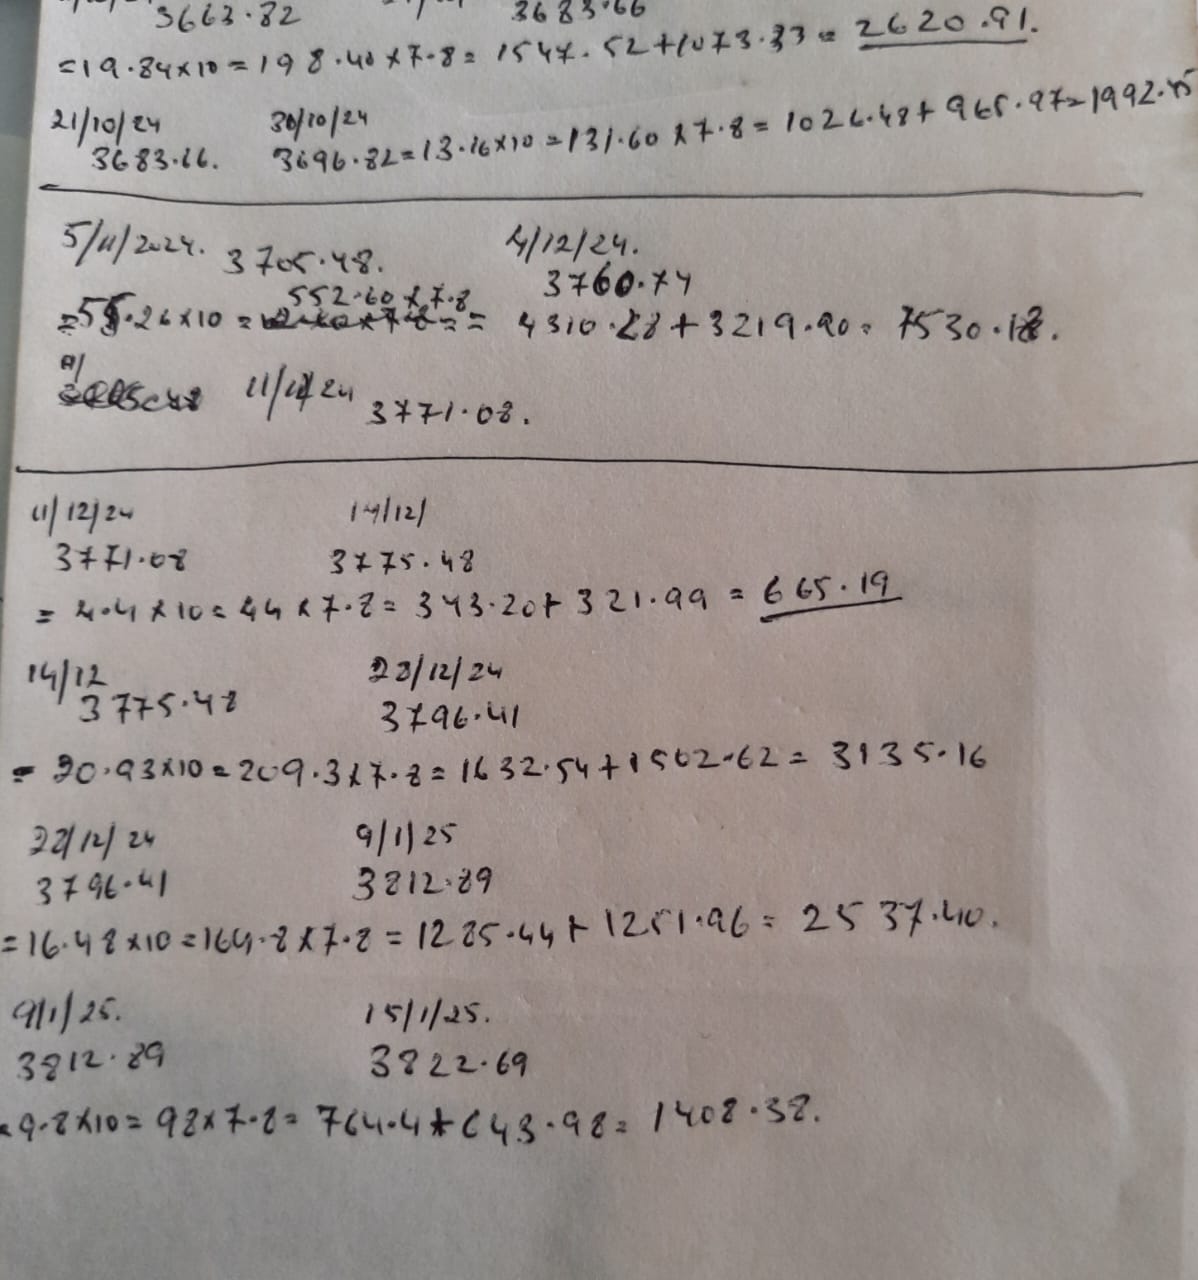 3663.82 3683.66
=19.84x10=198.40x7.8= 1547.52+1073.33= 2620.91.
21/10/24 30/10/24
3683.66. 3696.82=13.16x10=131.60x7.8=1026.48+965.97=1992.45
5/11/2024. 3705.48. 4/12/24.
3760.74
552.60x7.8
=55.26x10= = 4310.28+3219.90= 7530.18.
11/12/24 3771.08.
11/12/24 14/12/
3771.08 3775.48
= 4.4x10=44x7.8= 343.20+321.99 = 665.19
14/12 28/12/24
3775.48 3796.41
= 20.93x10=209.3x7.8=1632.54+1502.62= 3135.16
28/12/24 9/1/25
3796.41 3812.89
=16.48x10=164.8x7.8=1285.44+1251.96= 2537.40.
9/1/25. 15/1/25.
3812.89 3822.69
=9.8x10=98x7.8= 764.4+643.98= 1408.38.